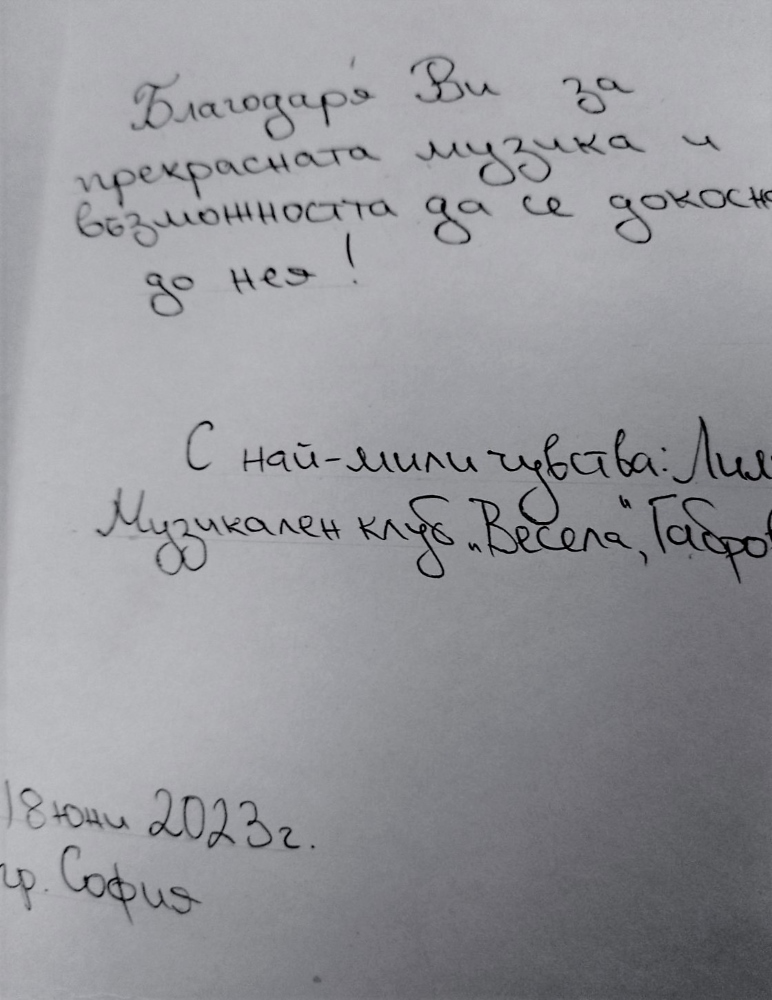 Благодаря Ви за
прекрасната музика и
възможността да се
до нея!
С най-мили чувства:
Музикален клуб „Весела“,
18 юни 2023г.
гр. София